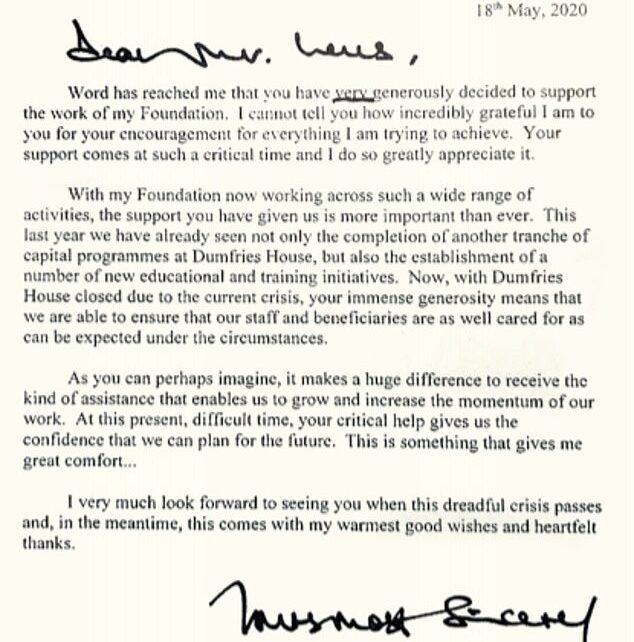 18th May, 2020
Dear Mr.
Word has reached me that you have very generously decided to support
the work of my Foundation. I cannot tell you how incredibly grateful I am to
you for your encouragement for everything I am trying to achieve. Your
support comes at such a critical time and I do so greatly appreciate it.
With my Foundation now working across such a wide range of
activities, the support you have given us is more important than ever. This
last year we have already seen not only the completion of another tranche of
capital programmes at Dumfries House, but also the establishment of a
number of new educational and training initiatives. Now, with Dumfries
House closed due to the current crisis, your immense generosity means that
we are able to ensure that our staff and beneficiaries are as well cared for as
can be expected under the circumstances.
As you can perhaps imagine, it makes a huge difference to receive the
kind of assistance that enables us to grow and increase the momentum of our
work. At this present, difficult time, your critical help gives us the
confidence that we can plan for the future. This is something that gives me
great comfort...
I very much look forward to seeing you when this dreadful crisis passes
and, in the meantime, this comes with my warmest good wishes and heartfelt
thanks.
Yours most sincerely